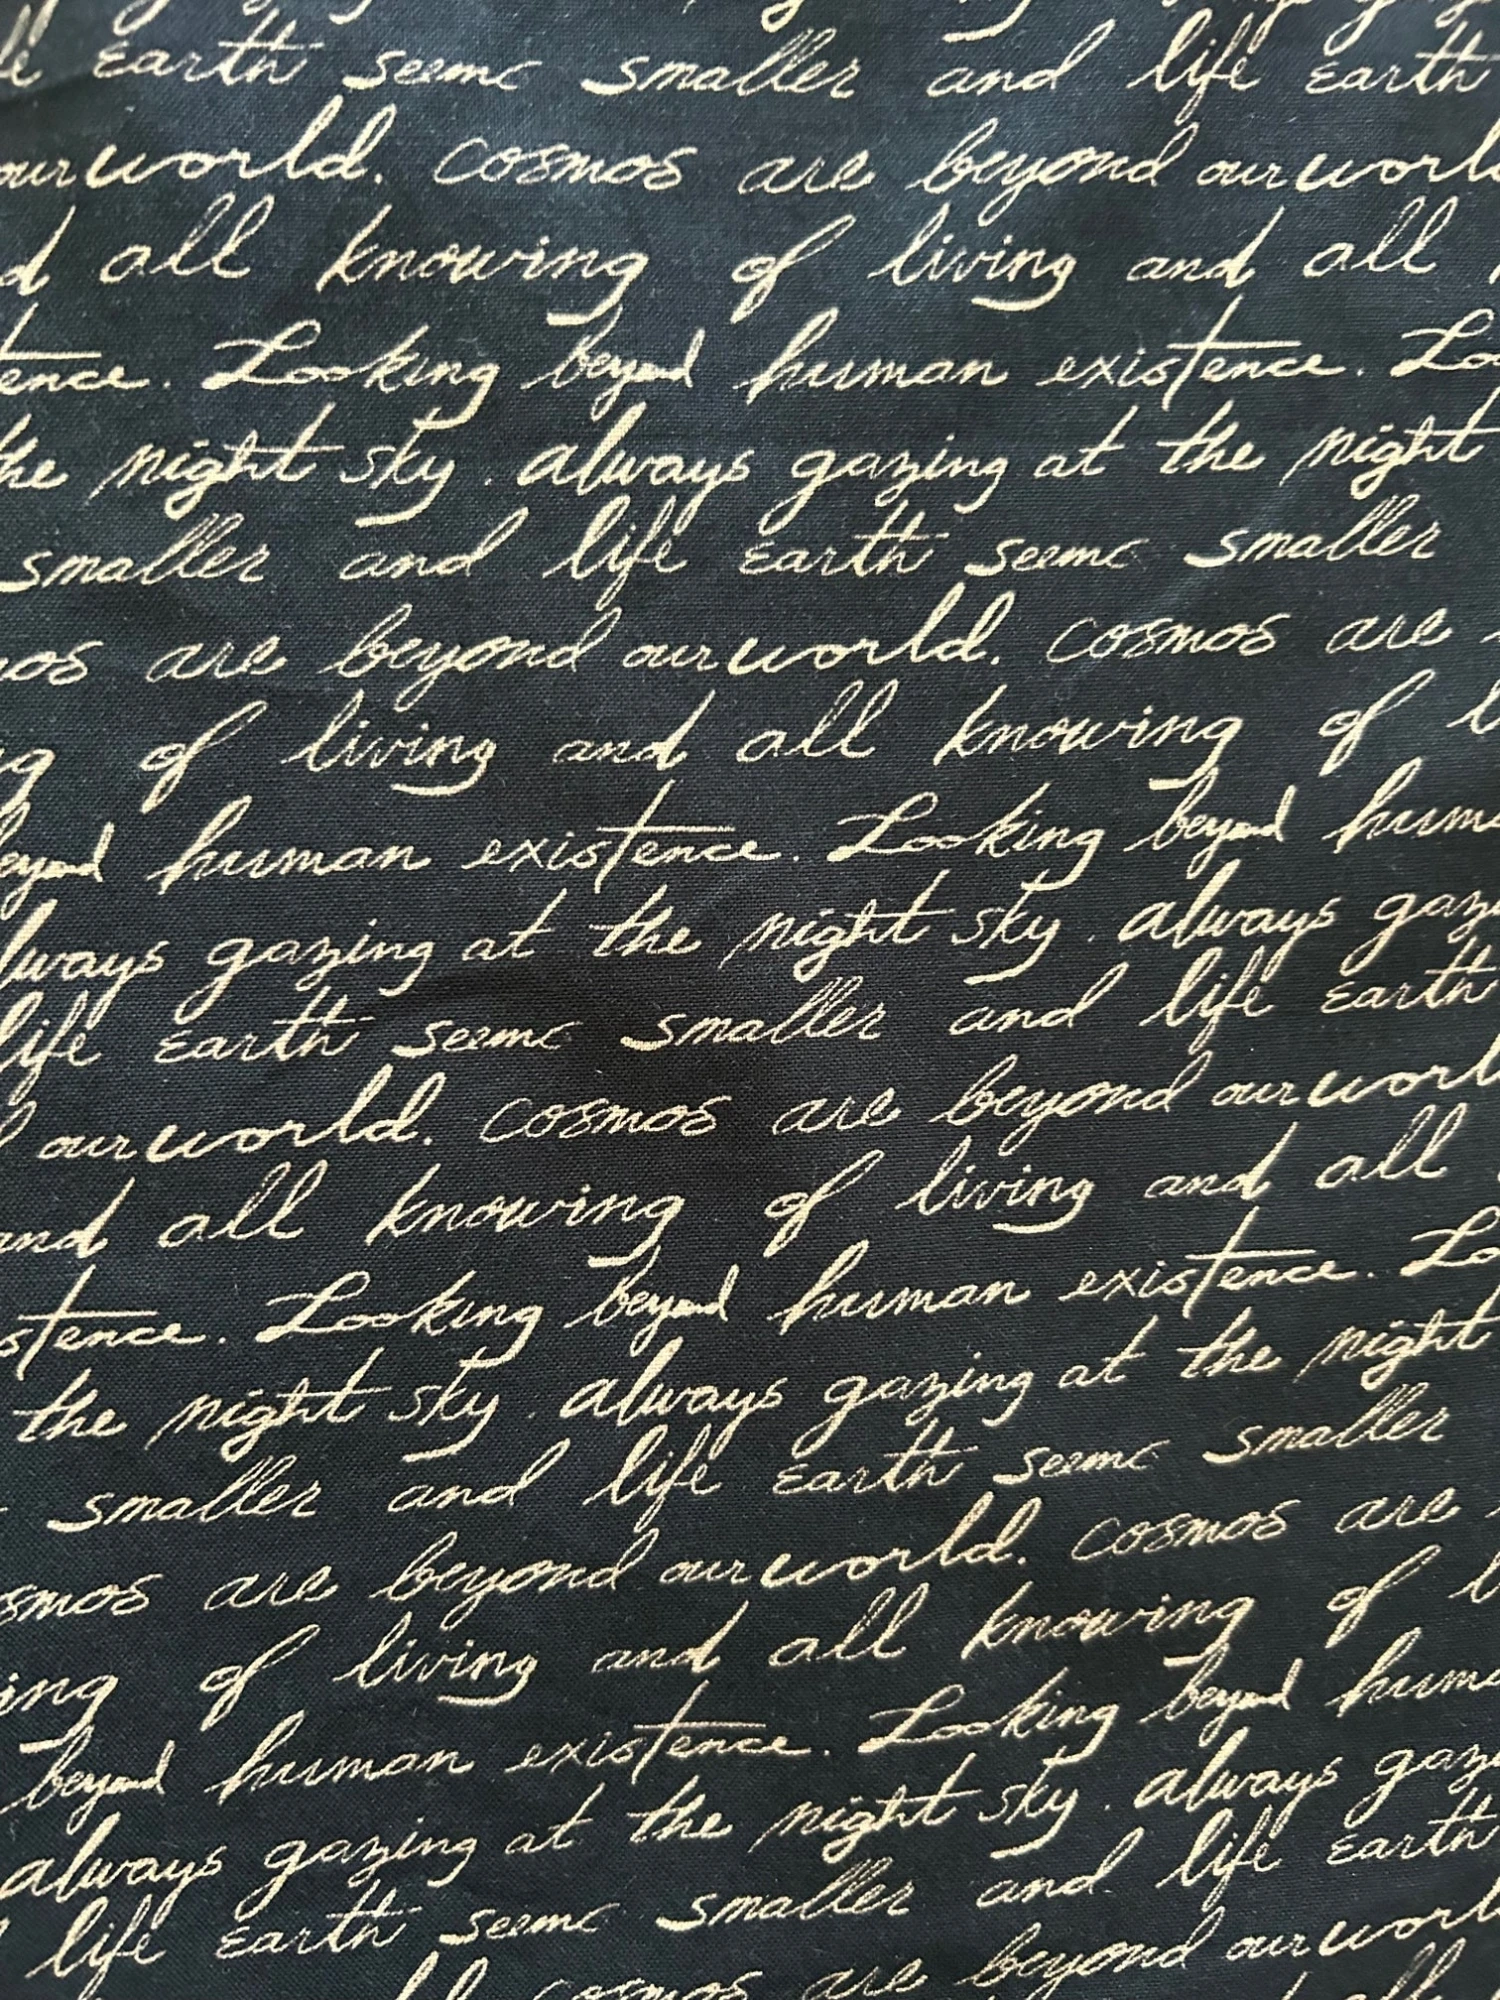 Earth seems smaller and life Earth
our world. Cosmos are beyond our world
all knowing of living and all
tence. Looking beyond human existence. Lo
the night sky. always gazing at the night
smaller and life Earth seems smaller
mos are beyond our world. Cosmos are
ng of living and all knowing of l
eyond human existence. Looking beyond huma
lways gazing at the night sky. always gazi
life Earth seems smaller and life Earth
our world. Cosmos are beyond our worl
and all knowing of living and all
stence. Looking beyond human existence. Lo
the night sky. always gazing at the night
smaller and life Earth seems smaller
smos are beyond our world. Cosmos are
ing of living and all knowing of l
beyond human existence. Looking beyond huma
always gazing at the night sky. always gazi
life Earth seems smaller and life Earth
Cosmos are beyond our world
all